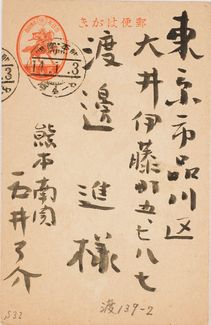 郵便はがき
東京市品川区
大井伊藤町五、七八七
渡邊進様
熊本南関
石井了介
渡139-2
S32